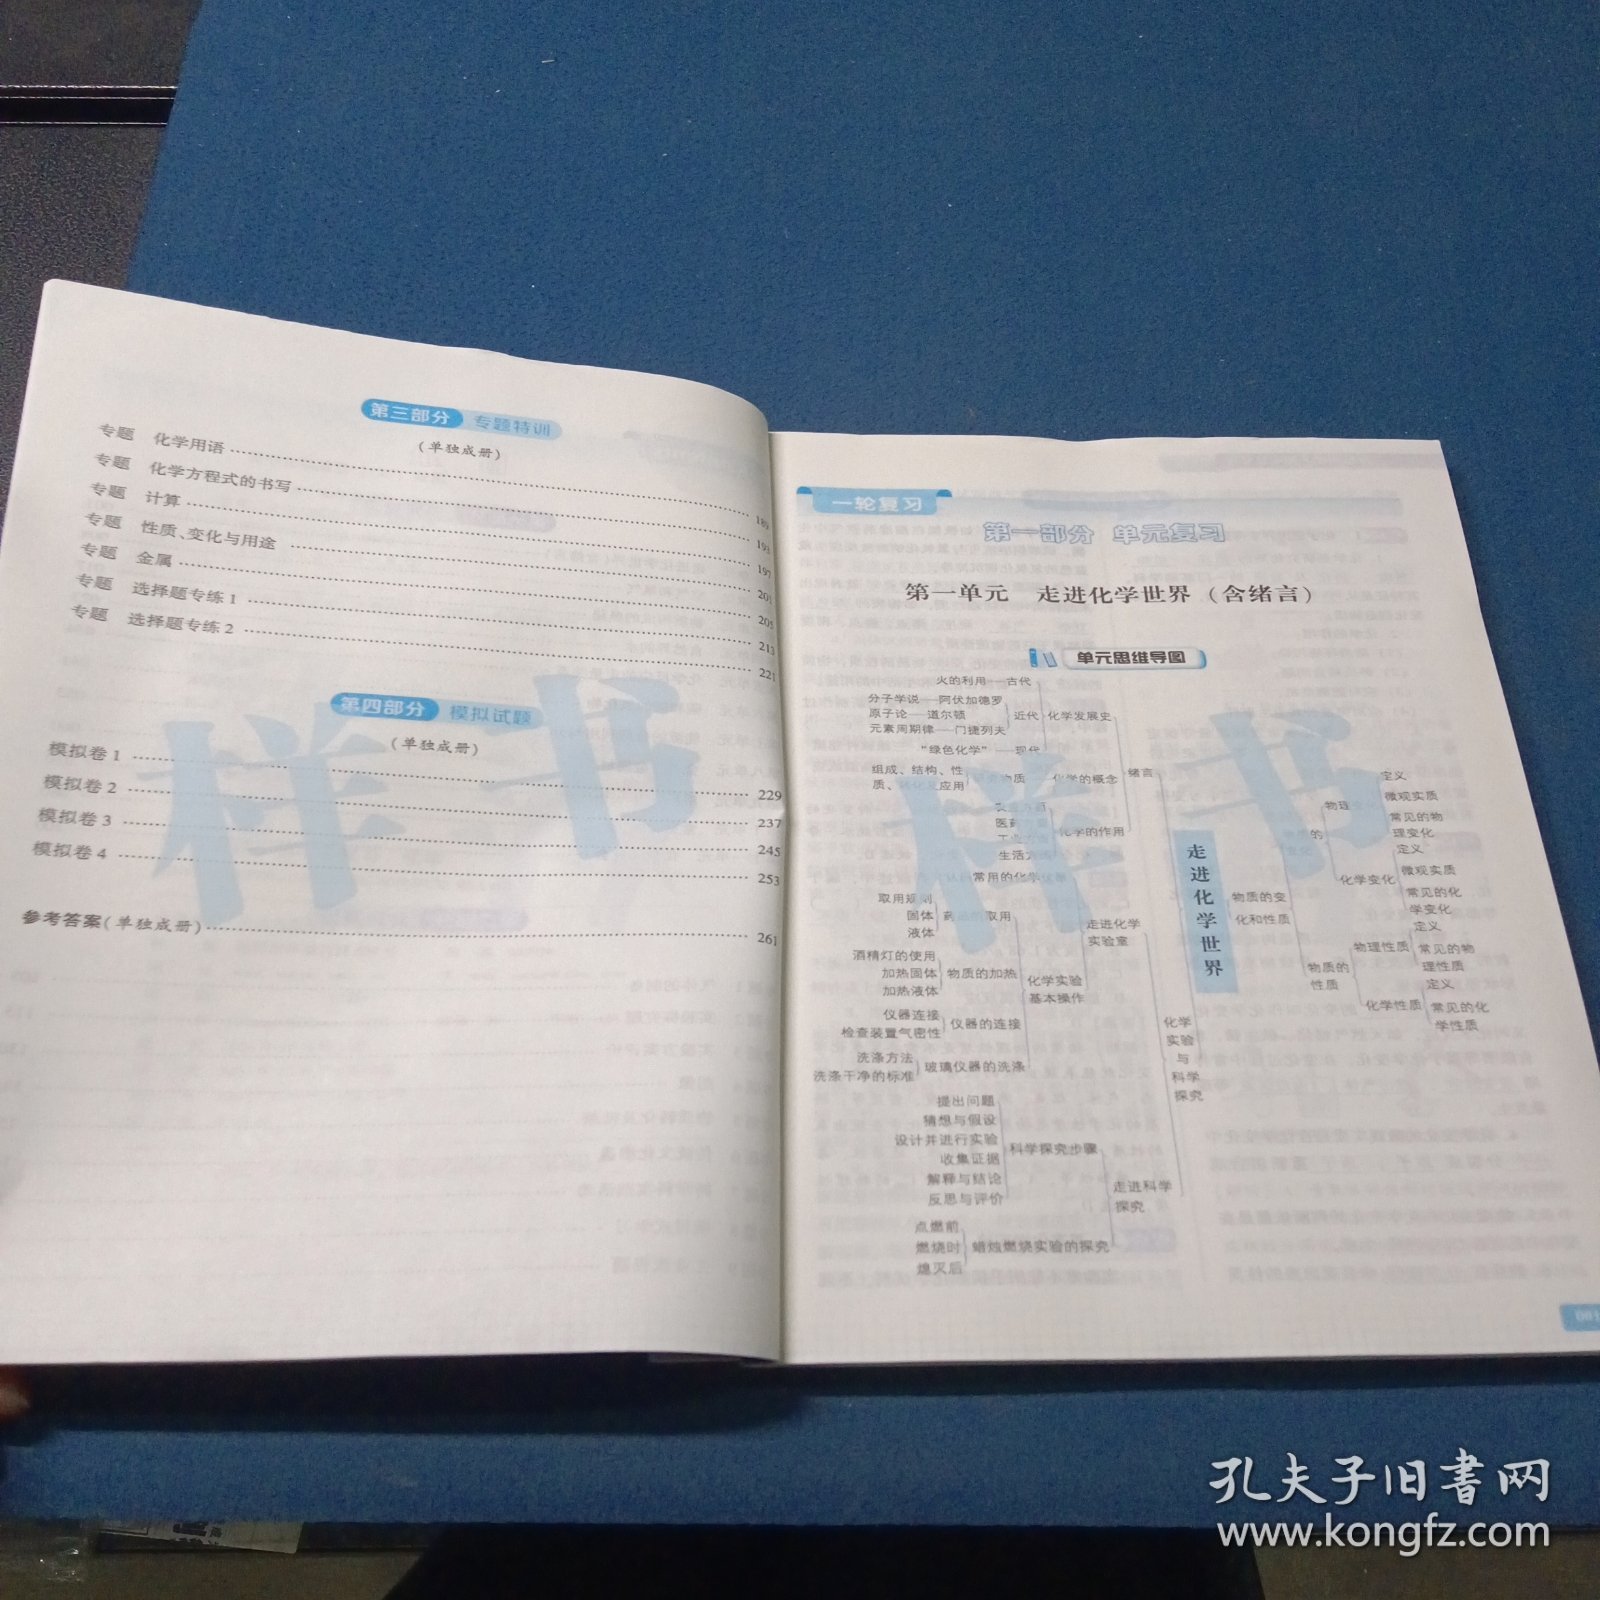 第三部分 专题特训
(单独成册)
专题 化学用语 189
专题 化学方程式的书写 193
专题 计算 197
专题 性质、变化与用途 201
专题 金属 205
专题 选择题专练1 213
专题 选择题专练2 221
第四部分 模拟试题
(单独成册)
模拟卷1 229
模拟卷2 237
模拟卷3 245
模拟卷4 253
参考答案(单独成册) 261
样书
一轮复习
第一部分 单元复习
第一单元 走进化学世界(含绪言)
单元思维导图
火的利用 古代
分子学说 阿伏加德罗
原子论 道尔顿
元素周期律 门捷列夫
近代
化学发展史
“绿色化学” 现代
组成、结构、性
质、变化及应用
物质
化学的概念
绪言
医药
生活方面
化学的作用
常用的化学仪器
取用规则
固体
液体
药品的取用
走进化学
实验室
酒精灯的使用
加热固体
加热液体
物质的加热
化学实验
基本操作
仪器连接
检查装置气密性
仪器的连接
洗涤方法
洗涤干净的标准
玻璃仪器的洗涤
化学
实验
与
科学
探究
提出问题
猜想与假设
设计并进行实验
收集证据
解释与结论
反思与评价
科学探究步骤
走进科学
探究
点燃前
燃烧时
熄灭后
蜡烛燃烧实验的探究
走进化学世界
物质的变
化和性质
定义
微观实质
常见的物
理变化
定义
化学变化
微观实质
常见的化
学变化
物质的
性质
定义
物理性质
常见的物
理性质
定义
化学性质
常见的化
学性质
样书
孔夫子旧书网
www.kongfz.com